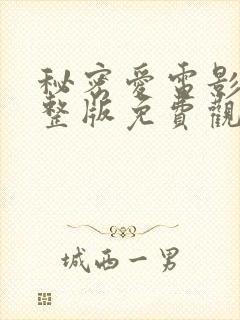 秘密愛電影
整版免費觀
城西一男